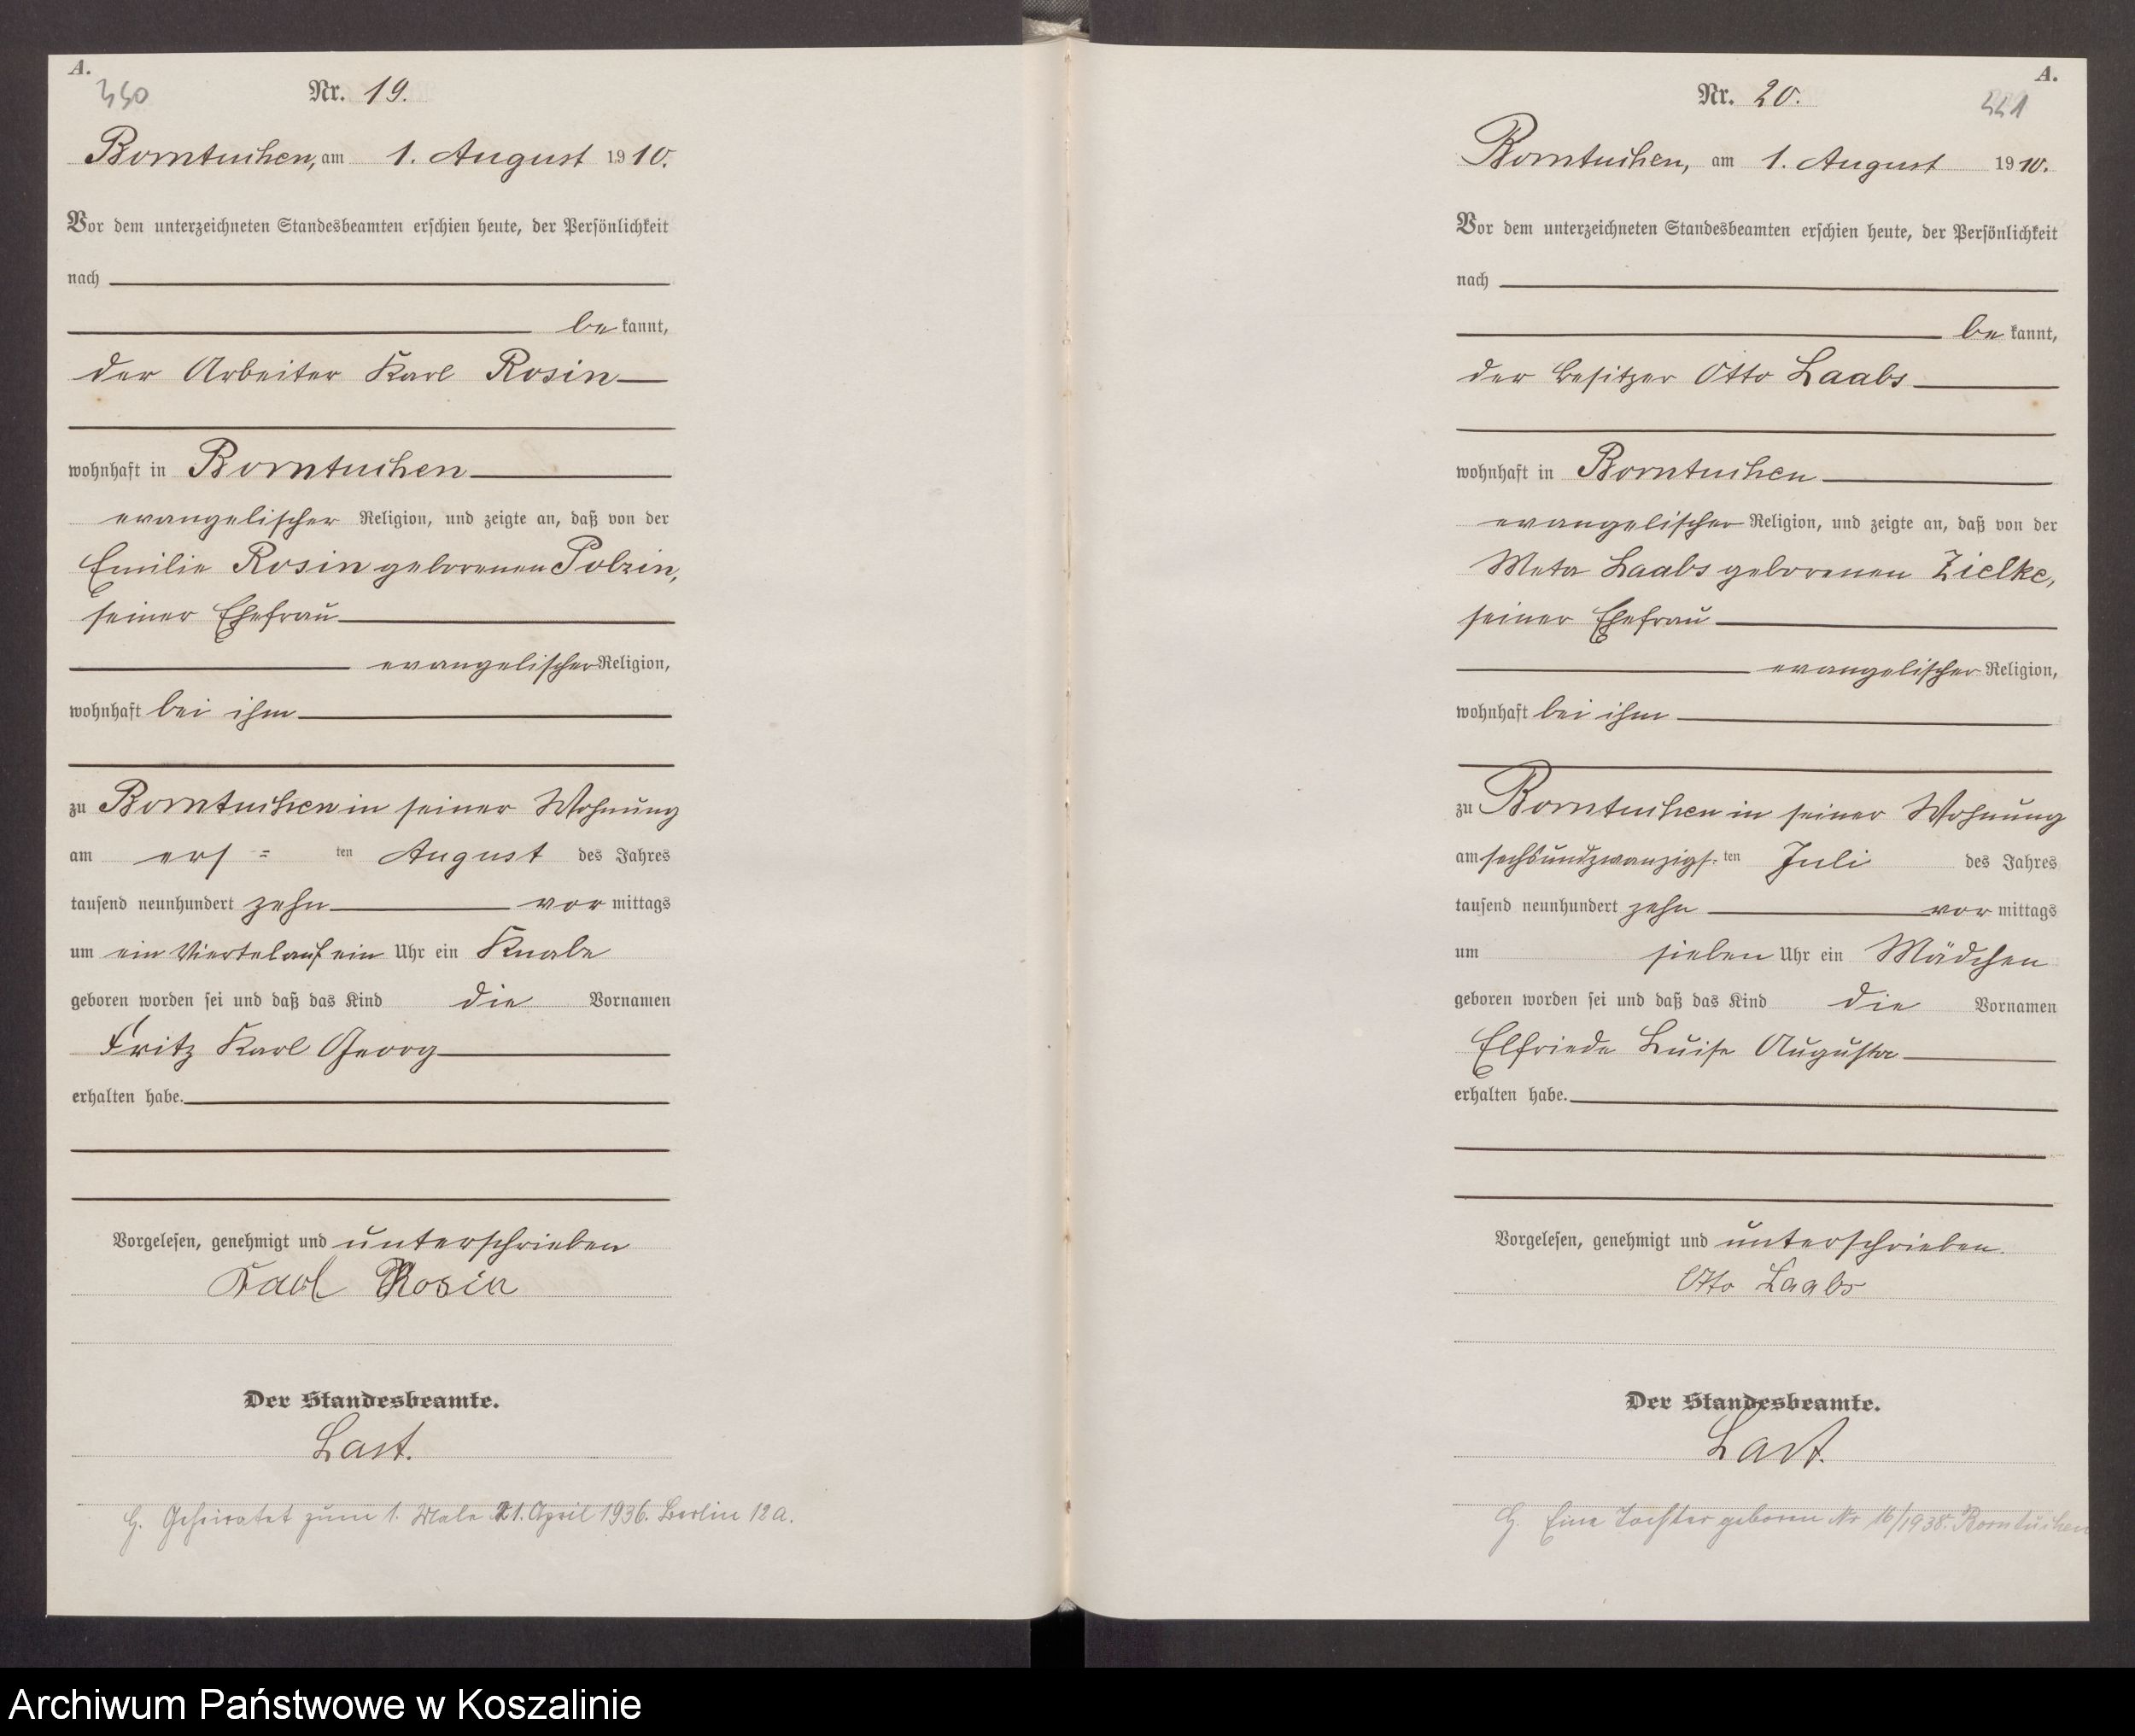 A.
440
Nr. 19.
Borntuchen, am 1. August 1910.
Vor dem unterzeichneten Standesbeamten erschien heute, der Persönlichkeit
nach
be kannt,
der Arbeiter Karl Rosin
wohnhaft in Borntuchen
evangelischer Religion, und zeigte an, daß von der
Emilie Rosin geborenen Polzin,
seiner Ehefrau
evangelischer Religion,
wohnhaft bei ihm
zu Borntuchen in seiner Wohnung
am ers= ten August des Jahres
tausend neunhundert zehn vor mittags
um ein Viertel auf ein Uhr ein Knabe
geboren worden sei und daß das Kind die Vornamen
Fritz Karl Georg
erhalten habe.
Vorgelesen, genehmigt und unterschrieben
Karl Rosin
Der Standesbeamte.
Last.
G. Geheiratet zum 1. Male 21. April 1936. Berlin 12a.
A.
441
Nr. 20.
Borntuchen, am 1. August 1910.
Vor dem unterzeichneten Standesbeamten erschien heute, der Persönlichkeit
nach
be kannt,
der Besitzer Otto Laabs
wohnhaft in Borntuchen
evangelischer Religion, und zeigte an, daß von der
Meta Laabs geborenen Zielke,
seiner Ehefrau
evangelischer Religion,
wohnhaft bei ihm
zu Borntuchen in seiner Wohnung
am sechsundzwanzigs= ten Juli des Jahres
tausend neunhundert zehn vor mittags
um sieben Uhr ein Mädchen
geboren worden sei und daß das Kind die Vornamen
Elfriede Luise Auguste
erhalten habe.
Vorgelesen, genehmigt und unterschrieben.
Otto Laabs
Der Standesbeamte.
Last.
G. Eine Tochter geboren Nr 16/1938. Borntuchen
Archiwum Państwowe w Koszalinie